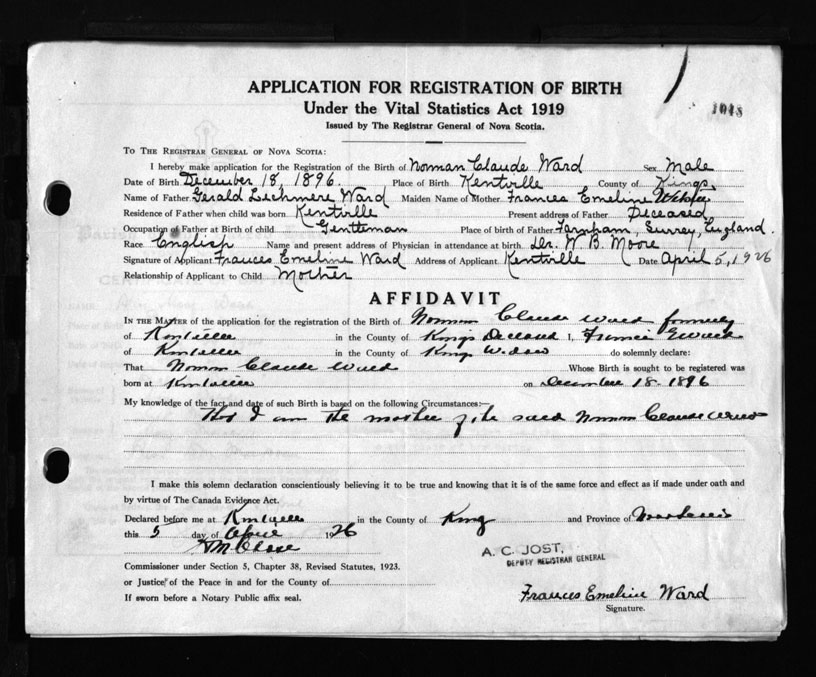 APPLICATION FOR REGISTRATION OF BIRTH
1048
Under the Vital Statistics Act 1919
Issued by The Registrar General of Nova Scotia.
To The Registrar General of Nova Scotia:
I hereby make application for the Registration of the Birth of Norman Claude Ward Sex Male
Date of Birth December 18, 1896. Place of Birth Kentville County of Kings
Name of Father Gerald Lechmere Ward Maiden Name of Mother Frances Emeline
Residence of Father when child was born Kentville Present address of Father Deceased
Occupation of Father at Birth of child Gentleman Place of birth of Father Farnham, Surrey, England.
Race English Name and present address of Physician in attendance at birth Dr. W B. Moore
Signature of Applicant Frances Emeline Ward Address of Applicant Kentville Date April 5, 1926
Relationship of Applicant to Child Mother
AFFIDAVIT
In the Matter of the application for the registration of the Birth of Norman Claude Ward formerly
of Kentville in the County of Kings Deceased I, Frances E Ward
of Kentville in the County of Kings Widow do solemnly declare:
That Norman Claude Ward Whose Birth is sought to be registered was
born at Kentville on December 18 1896
My knowledge of the fact and date of such Birth is based on the following Circumstances:—
That I am the mother of the said Norman Claude Ward
I make this solemn declaration conscientiously believing it to be true and knowing that it is of the same force and effect as if made under oath and
by virtue of The Canada Evidence Act.
Declared before me at Kentville in the County of Kings and Province of Nova Scotia
this 5 day of April 1926
A. C. JOST,
DEPUTY REGISTRAR GENERAL
Chase
Commissioner under Section 5, Chapter 38, Revised Statutes, 1923.
or Justice of the Peace in and for the County of
If sworn before a Notary Public affix seal.
Frances Emeline Ward
Signature.